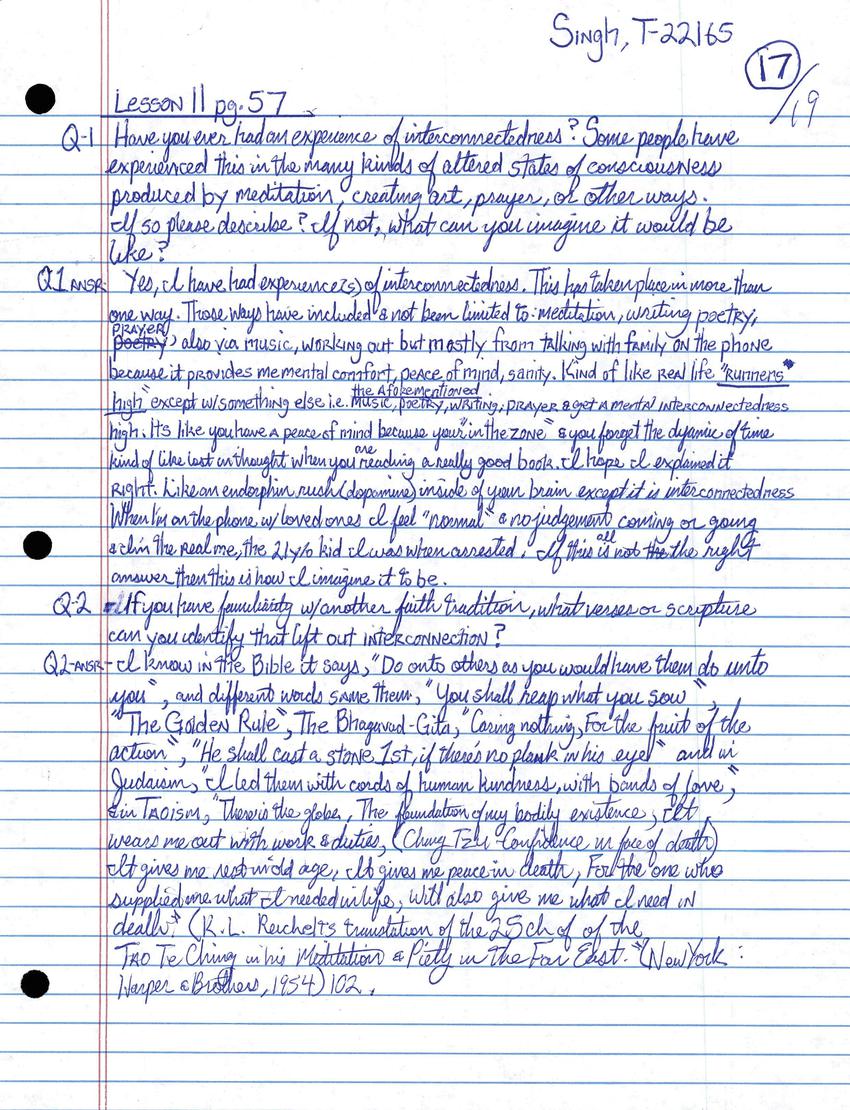 Singh, T-22165
17/19
Lesson 11 pg. 57
Q-1 Have you ever had an experience of interconnectedness? Some people have
experienced this in the many kinds of altered states of consciousness
produced by meditation, creating art, prayer, or other ways.
If so please describe? If not, what can you imagine it would be
like?
Q1 ANSR: Yes, I have had experience(s) of interconnectedness. This has taken place in more than
one way. Those ways have included & not been limited to: meditation, writing poetry,
prayer
poetry, also via music, working out but mostly from talking with family on the phone
because it provides me mental comfort, peace of mind, sanity. Kind of like real life "Runners"
the Aforementioned
high" except w/something else i.e. music, poetry, writing, prayer & get a mental interconnectedness
high. It's like you have a peace of mind because your "in the zone" & you forget the dyamic of time
kind of like lost in thought when you are reading a really good book. I hope I explained it
Right. Like an endorphin rush (dopamine) inside of your brain except it is interconnectedness
When I'm on the phone w/ loved ones I feel "normal" & no judgement coming or going
& I'm the Real me, the 21 y/o kid I was when arrested. If this is all not the the right
answer then this is how I imagine it to be.
Q-2 If you have familiarity w/another faith tradition, what verses or scripture
can you identify that lift out interconnection?
Q2-ANSR- I know in the Bible it says, "Do onto others as you would have them do unto
you", and different words same them, "You shall reap what you sow",
"The Golden Rule", The Bhagavad-Gita, "Caring nothing, For the fruit of the
action", "He shall cast a stone 1st, if there's no plank in his eye" and in
Judaism, "I led them with cords of human kindness, with bands of love",
& in TAOism, "There is the globe, The foundation of my bodily existence, It
wears me out with work & duties, (Chung Tzu - Confidence in face of death)
It gives me rest in old age, It gives me peace in death, For the one who
supplied me what I needed in life, Will also give me what I need in
death." (K.L. Reichelt's translation of the 25 ch of of the
TAO Te Ching in his Meditation & Piety in the Far East." (New York:
Harper & Brothers, 1954) 102.